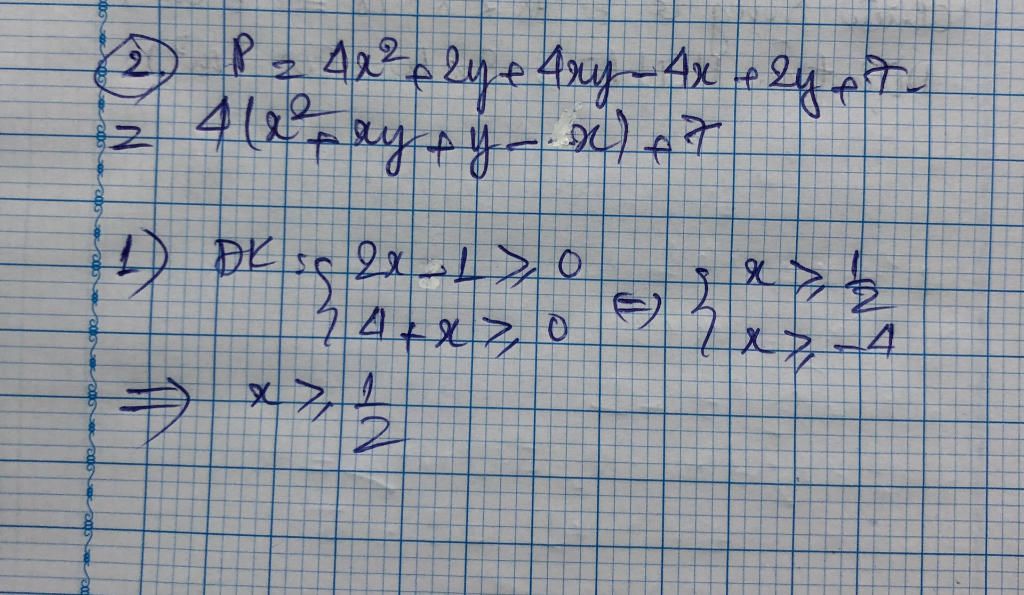 2. P = 4x² + 2y + 4xy - 4x + 2y + 7.
= 4(x² + xy + y - x) + 7
1) ĐK: { 2x - 1 ≥ 0 ⇔ { x ≥ 1/2
4 + x ≥ 0 x ≥ -4
⇒ x ≥ 1/2